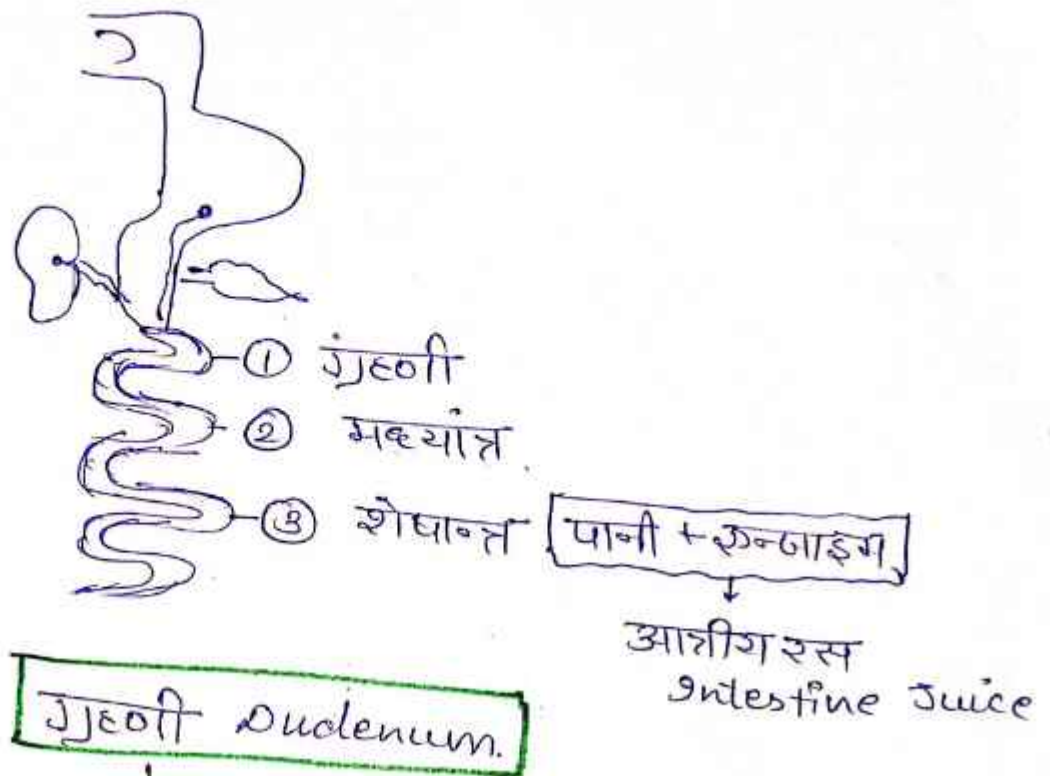 ① ग्रहणी
② मध्यांत्र
③ शेषान्त्र पानी + एन्जाइम
आत्रीय रस
Intestine Juice
ग्रहणी Dudenum.